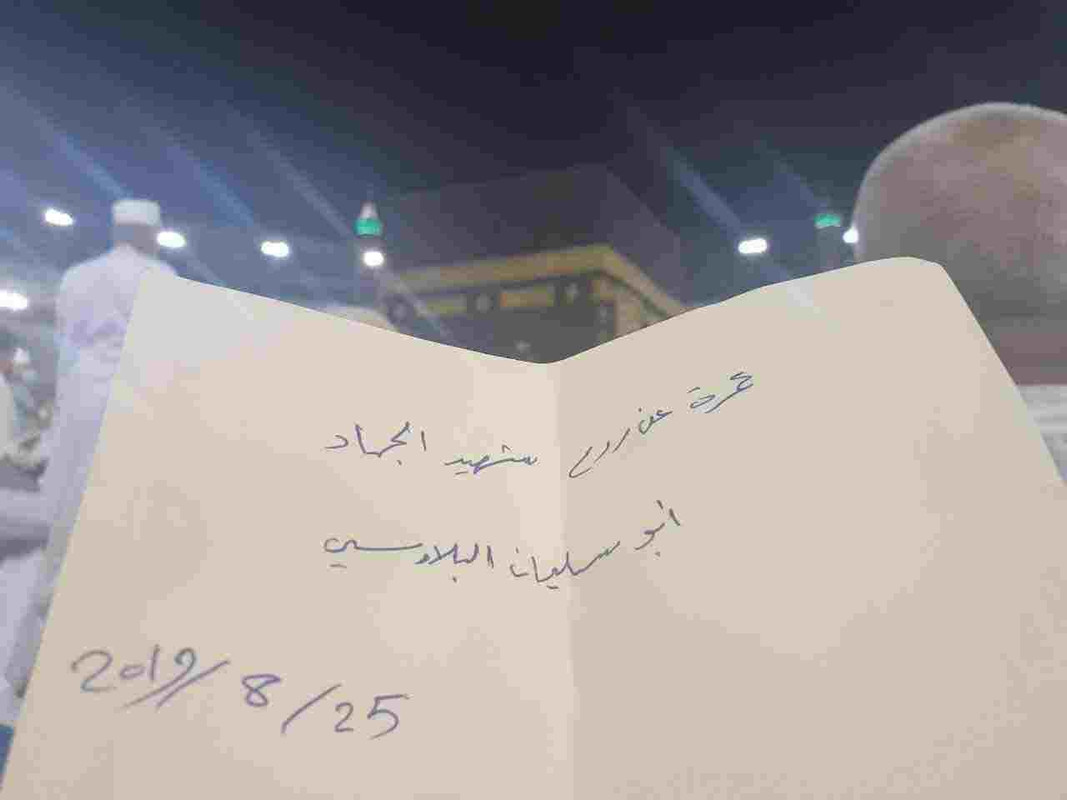 عمرة عن روح شهيد الجهاد
ابو سليمان البلاوسي
2019/8/25